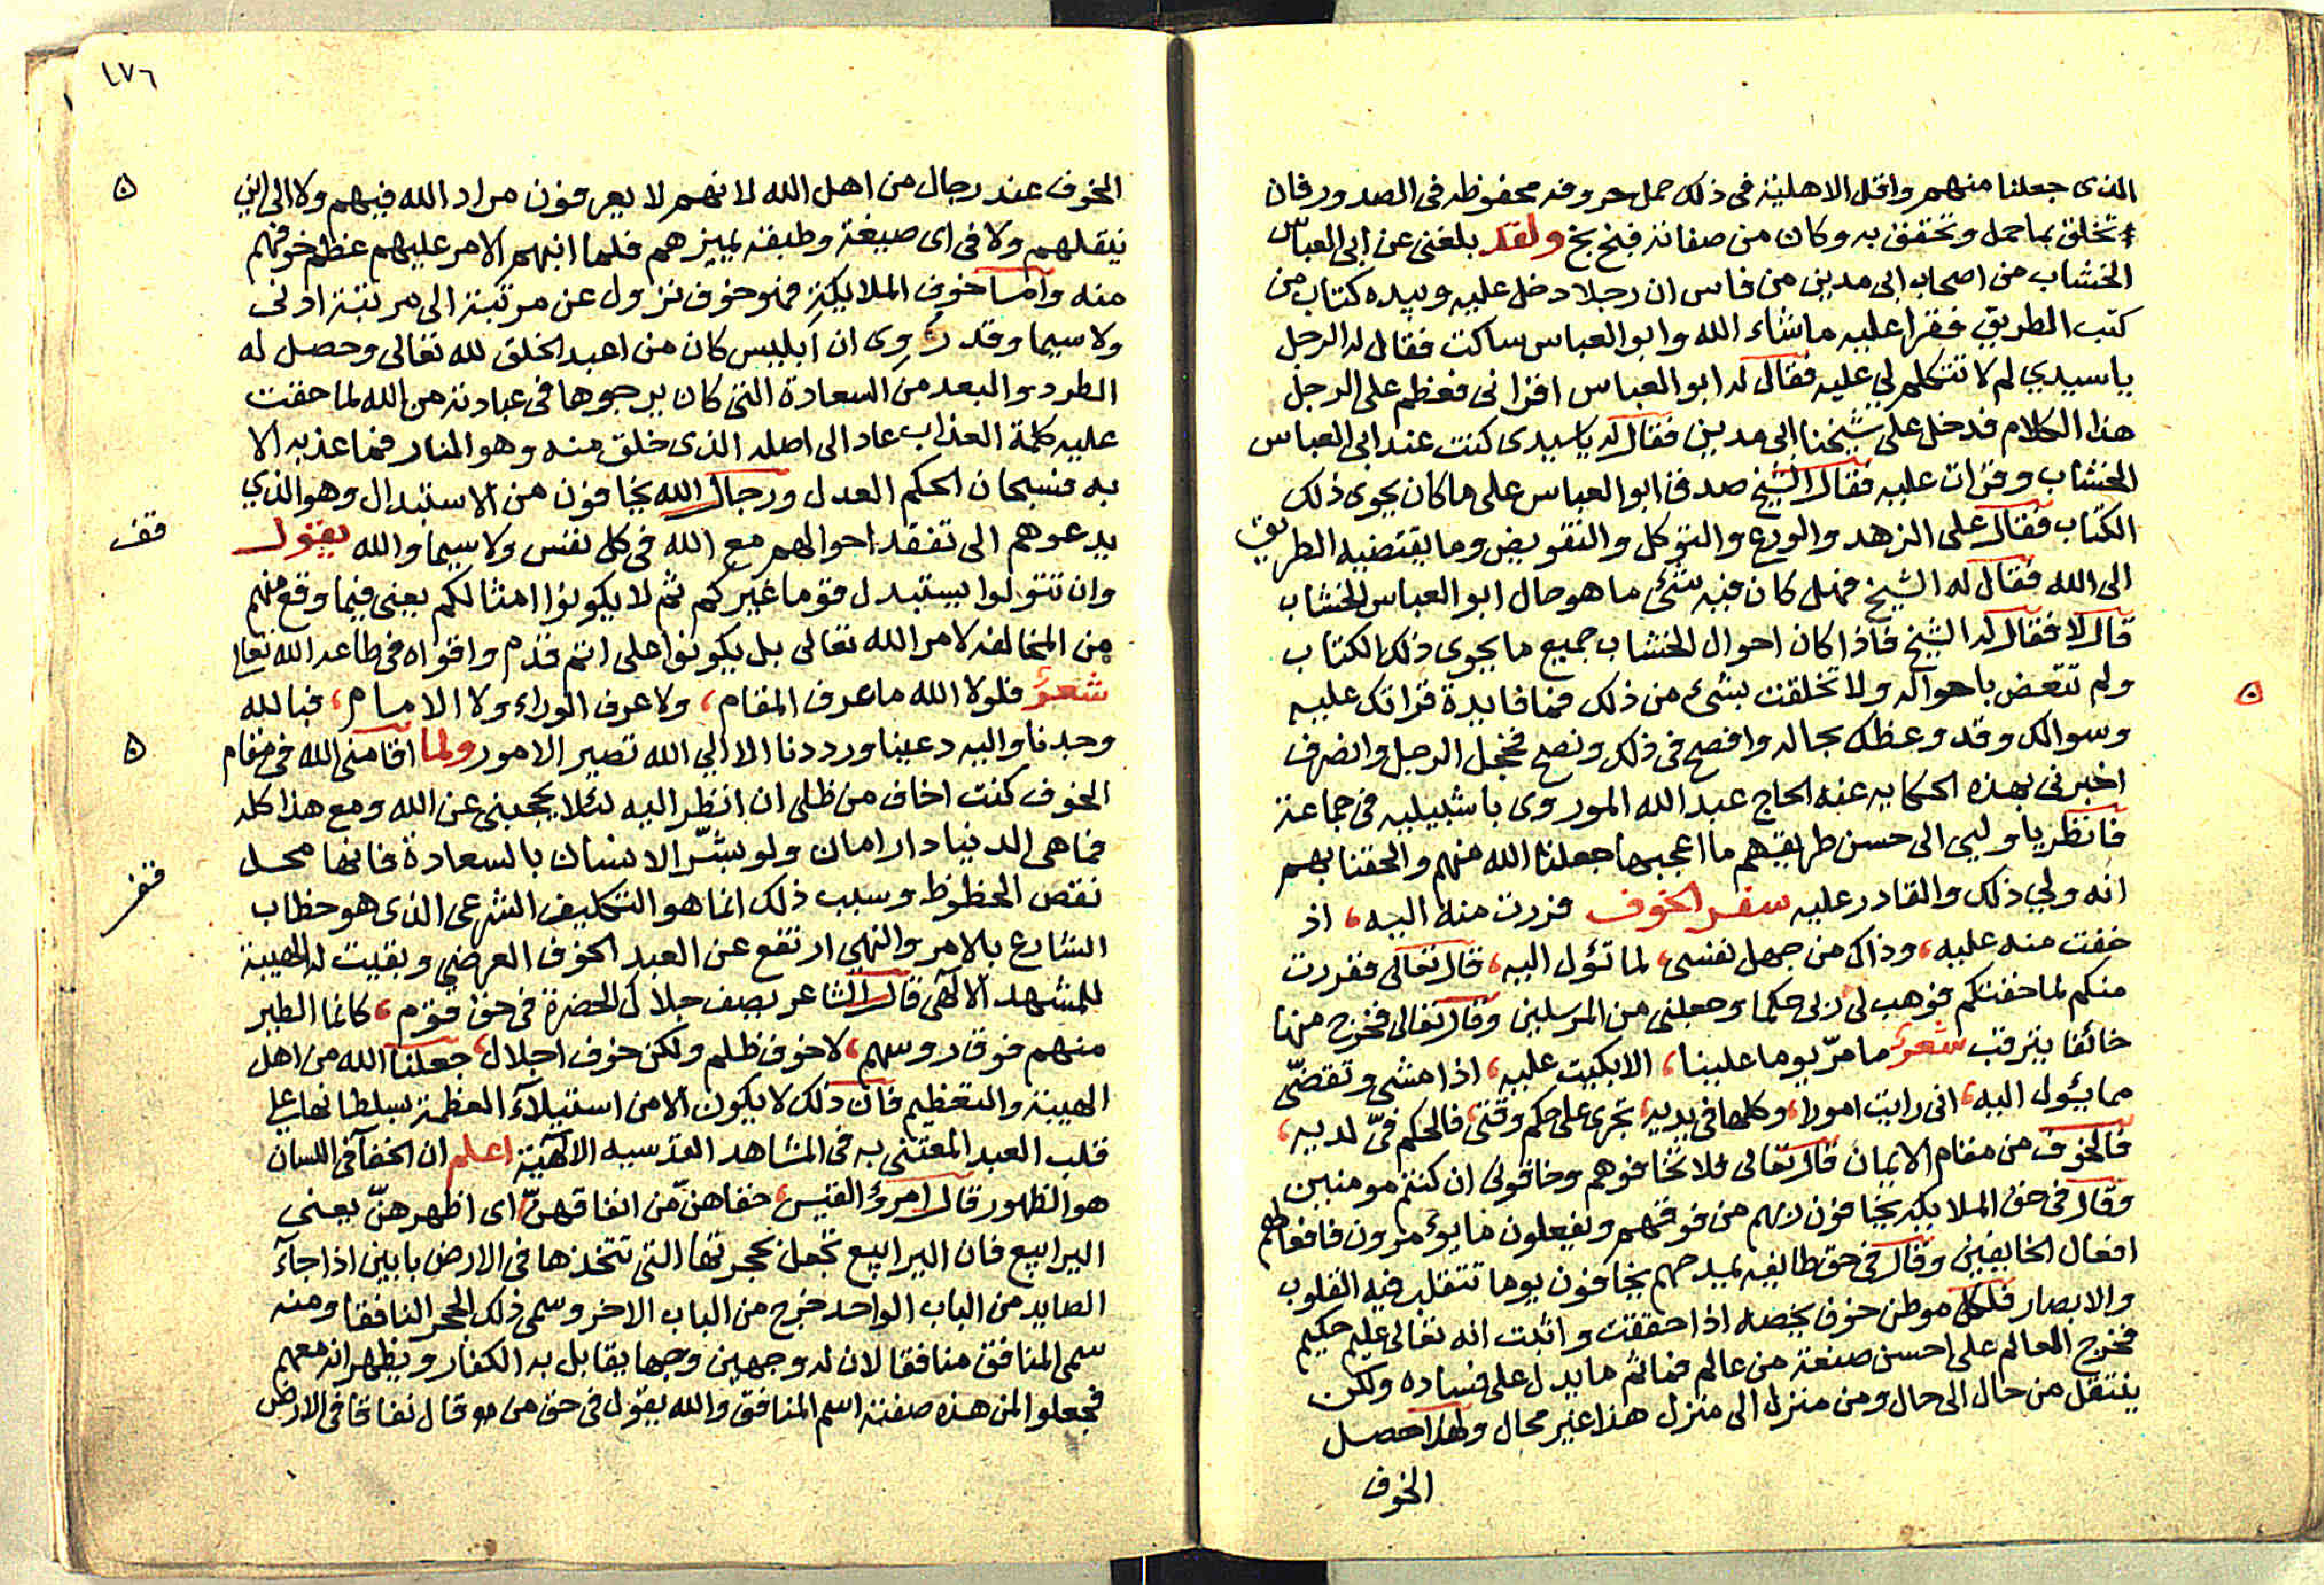 الذى جعلنا منهم واقل الاهلية فى ذلك حمل حروفه محفوظه فى الصدور فان
تخلق بما حمل وتحقق به وكان من صفاته فبخ بخ ولقد بلغنى عن ابى العباس
الخشاب من اصحاب ابى مدين من فاس ان رجلا دخل عليه وبيده كتاب من
كتب الطريق فقرا عليه ما شاء الله وابو العباس ساكت فقال له الرجل
يا سيدي لم لا تتكلم لي عليه فقال له ابو العباس اقرانى فعظم على الرجل
هذا الكلام فدخل على شيخنا ابى مدين فقال له يا سيدى كنت عند ابى العباس
الخشاب وقرات عليه فقال الشيخ صدق ابو العباس على ما كان يحوى ذلك
الكتاب فقال على الزهد والورع والتوكل والتفويض وما يقتضيه الطريق
الى الله فقال له الشيخ فهل كان فيه شئ ما هو حال ابو العباس الخشاب
قال لا فقال له الشيخ فاذا كان احوال الخشاب جميع ما يحوى ذلك الكتاب
ولم تتعض باحواله ولا تخلقت بشىء من ذلك فما فايدة قراتك عليه
وسوالك وقد وعظك بحاله وافصح فى ذلك ونصح فخجل الرجل وانصرف
اخبرنى بهذه الحكايه عنه الحاج عبد الله الموروى باشبيليه فى جماعة
فانظر يا وليى الى حسن طريقهم ما اعجبها جعلنا الله منهم والحقنا بهم
انه ولي ذلك والقادر عليه سفر الخوف فررت منه اليه، اذ
خفت منه عليه، وذاك من جهل نفسى، لما تؤل اليه، قال تعالى ففررت
منكم لما خفتكم فوهب لى ربى حكما وجعلنى من المرسلين وقال تعالى فخرج منها
خائفا يترقب شعر ما مرّ يوما علينا، الا بكيت عليه، اذا مشى وتقضّى
مما يئول اليه، انى رايت امورا، وكلها فى يديه، تجرى على حكم وقتى، فالحكم فىّ لديه،
فالخوف من مقام الايمان قال تعالى فلا تخافوهم وخافونى ان كنتم مومنين
وقال فى حق الملايكه يخافون ربهم من فوقهم ويفعلون ما يؤمرون فافعالهم
افعال الخايفين وقال فى حق طايفه يمدحهم يخافون يوما تتقلب فيه القلوب
والابصار فلكل موطن خوف يخصه اذا حققت واثبت انه تعالى عليم حكيم
مخرج العالم على احسن صنعة من عالم فما ثم ما يدل على فساده ولكن
ينتقل من حال الى حال ومن منزل الى منزل هذا غير محال ولهذا حصل
الخوف
١٧٦
الخوف عند رجال من اهل الله لانهم لا يعرفون مراد الله فيهم ولا الى اين
ينقلهم ولا فى اى صبغة وطبقة يميزهم فلما ابهم الامر عليهم عظم خوفهم
منه واما خوف الملايكة فهو خوف نزول عن مرتبة الى مرتبة ادنى
ولا سيما وقد روى ان ابليس كان من اعبد الخلق لله تعالى وحصل له
الطرد والبعد من السعادة التى كان يرجوها فى عبادته من الله لما حقت
عليه كلمة العذاب عاد الى اصله الذى خلق منه وهو النار فما عذب الا
به فسبحان الحكم العدل ورجال الله يخافون من الاستبدال وهو الذي
يدعوهم الى تفقد احوالهم مع الله فى كل نفس ولا سيما والله يقول
قف
وان تتولوا يستبدل قوما غيركم ثم لا يكونوا امثالكم يعنى فيما وقع منهم
من المخالفه لامر الله تعالى بل يكونوا على اتم قدم واقواه فى طاعة الله تعالى
شعر فلولا الله ما عرف المقام، ولا عرف الوراء ولا الامام، فبالله
وجدنا واليه دعينا ورددنا الا الي الله تصير الامور ولما اقامنى الله فى مقام
الخوف كنت اخاف من ظلى ان انظر اليه لئلا يحجبنى عن الله ومع هذا كله
فما هى الدنيا دار امان ولو بشّر الانسان بالسعادة فانها محل
نقص الحظوظ وسبب ذلك انما هو التكليف الشرعى الذى هو خطاب
الشارع بالامر والنهي ارتفع عن العبد الخوف العرضي وبقيت له الهيبة
للمشهد الالهى قال الشاعر يصف جلال الحضرة فى حق قوم، كانما الطير
منهم فوق روسهم، لا خوف ظلم ولكن خوف اجلال، جعلنا الله من اهل
الهيبة والتعظيم فان ذلك لا يكون الا من استيلاء العظمة بسلطانها على
قلب العبد المعتنى به فى المشاهد القدسيه الالهية اعلم ان الخفا فى اللسان
هو الظهور قال امرؤ القيس، خفاهنّ من انفاقهنّ اى اظهرهنّ يعنى
اليرابيع فان اليرابيع تجعل لحجرتها التى تتخذها فى الارض بابين اذا جاء
الصايد من الباب الواحد خرج من الباب الاخر وسمى ذلك الجحر النافقا ومنه
سمى المنافق منافقا لان له وجهين وجها يقابل به الكفار ويظهر انه معهم
فجعلوا لمن هذه صفته اسم المنافق والله يقول فى حق من هو قال نفاقا فى الارض